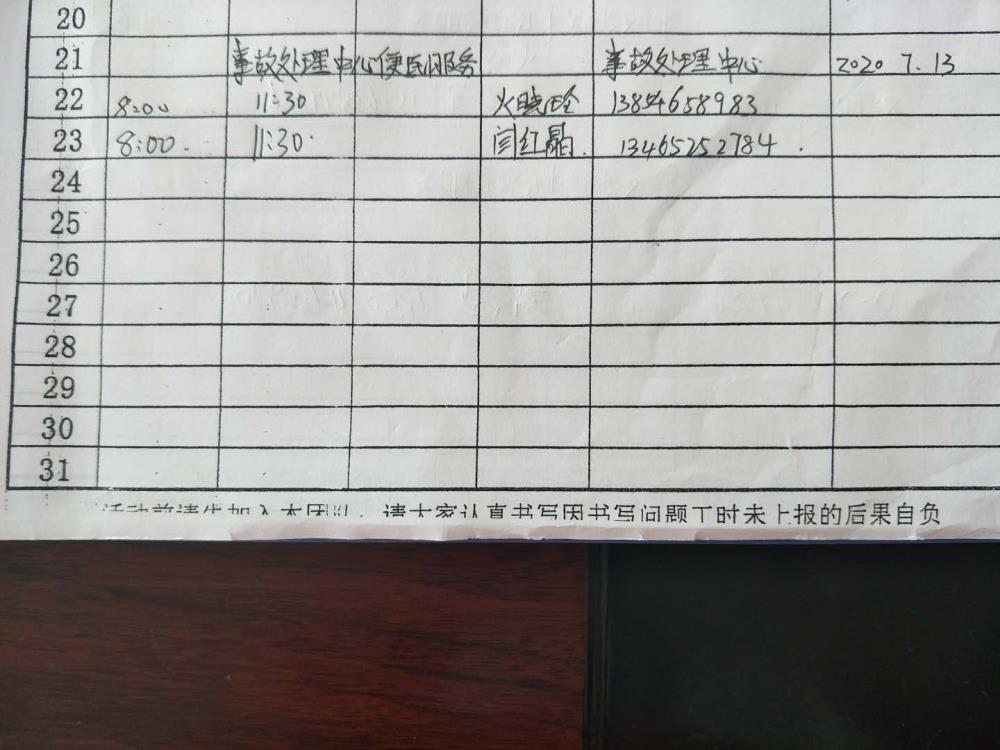 20
21 事故处理中心便民服务 事故处理中心 2020 7.13
22 8:00 11:30 火晓 13854658983
23 8:00. 11:30. 闫红晶. 13465252784.
24
25
26
27
28
29
30
31
活动前请先加入本团队,请大家认真书写因书写问题工时未上报的后果自负